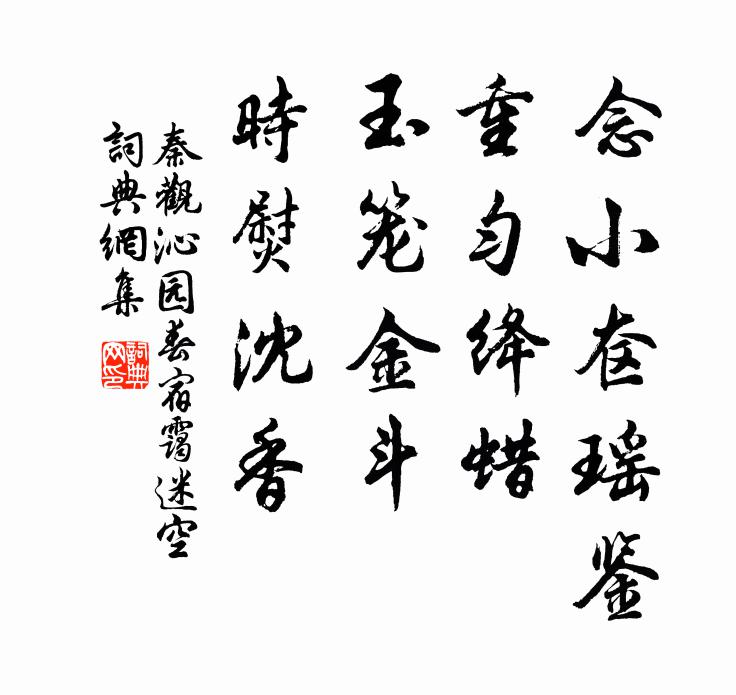 念小奁瑶鉴
重匀绛蜡
玉笼金斗
時熨沈香
秦觀沁园春宿靄迷空
詞典網集
詞典网印